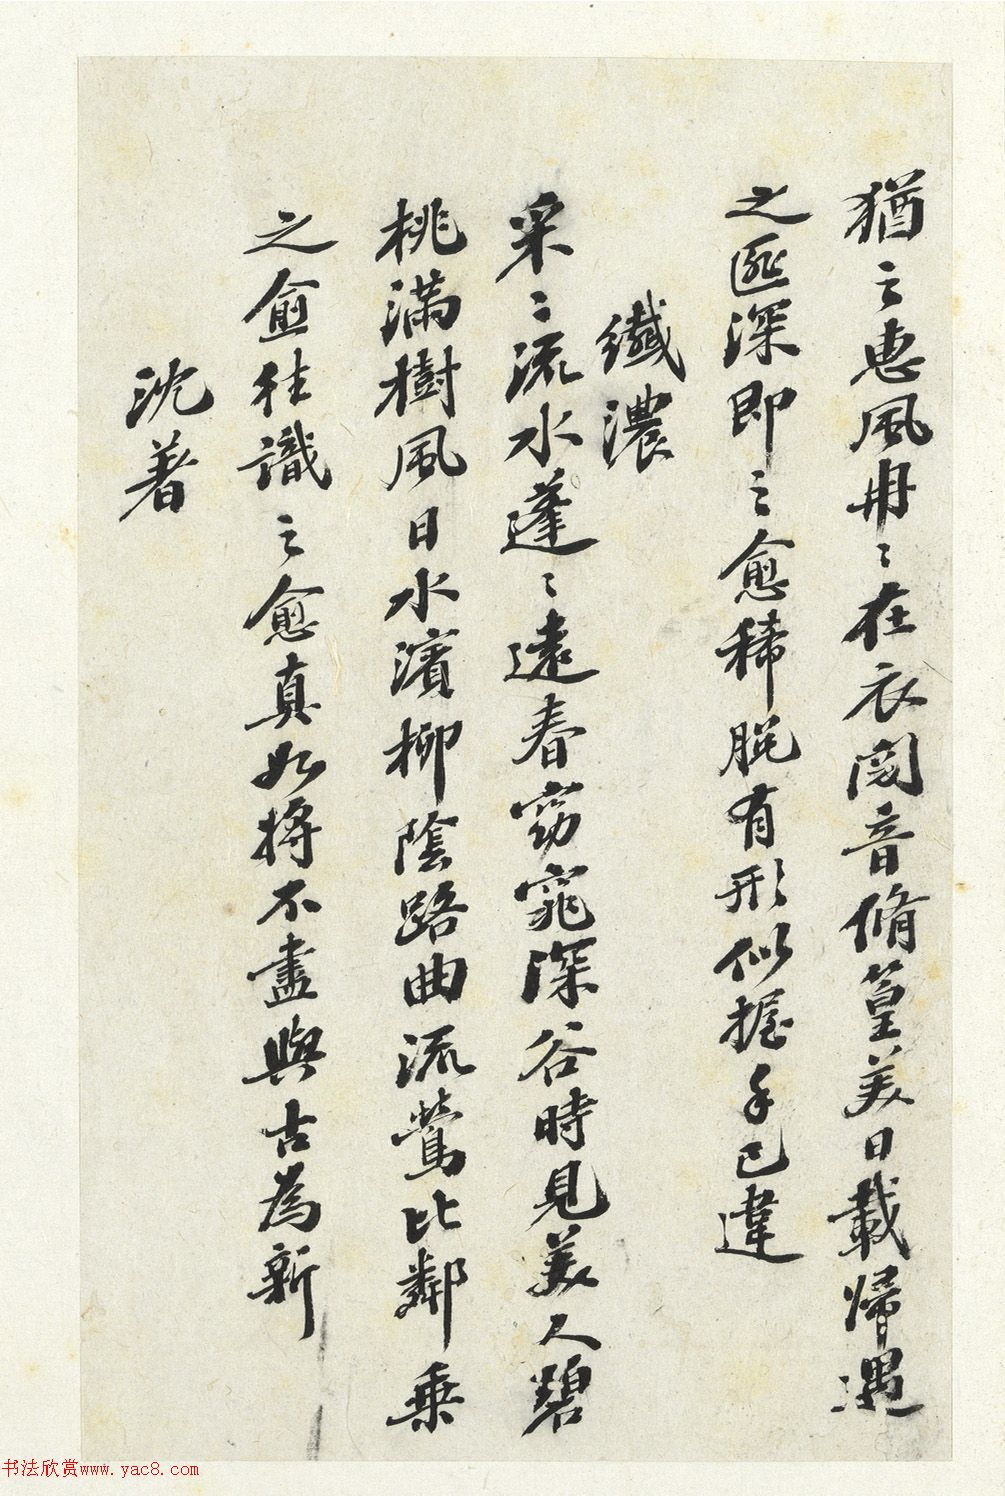 猶之惠風冉〻在衣閱音脩篁美日載歸遇
之匪深即之愈稀脫有形似握手已違
纖濃
采〻流水蓬〻遠春窈窕深谷時見美人碧
桃滿樹風日水濱柳陰路曲流鶯比鄰乗
之愈往識之愈真如將不盡與古為新
沈著
书法欣赏www.yac8.com